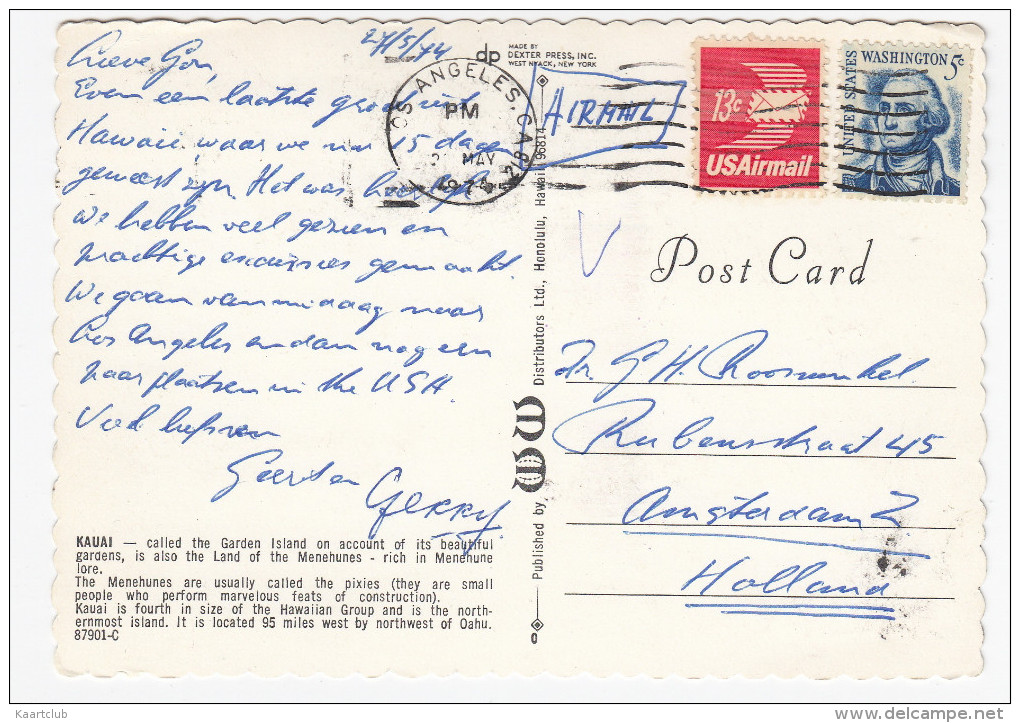 27/5/74
Lieve Gon,
Even een laatste groet uit
Hawaii waar we nu 15 dagen
geweest zijn. Het was heerlijk
We hebben veel gezien en
prachtige excursies gemaakt.
We gaan vanmiddag naar
Los Angeles en dan nog een
paar plaatsen in the USA.
Veel liefs van
Geert en
GERRY
KAUAI — called the Garden Island on account of its beautiful
gardens, is also the Land of the Menehunes - rich in Menehune
lore.
The Menehunes are usually called the pixies (they are small
people who perform marvelous feats of construction).
Kauai is fourth in size of the Hawaiian Group and is the north-
ernmost island. It is located 95 miles west by northwest of Oahu.
87901-C
dp
MADE BY
DEXTER PRESS, INC.
WEST NYACK, NEW YORK
LOS ANGELES, CA
PM
MAY
1974
Published by WW Distributors Ltd., Honolulu, Hawaii 96814
AIRMAIL
13c
USAirmail
UNITED STATES
WASHINGTON 5c
V
Post Card
G H
Rubensstraat 45
Amsterdam Z
Holland
Kaartclub
delcampe.net